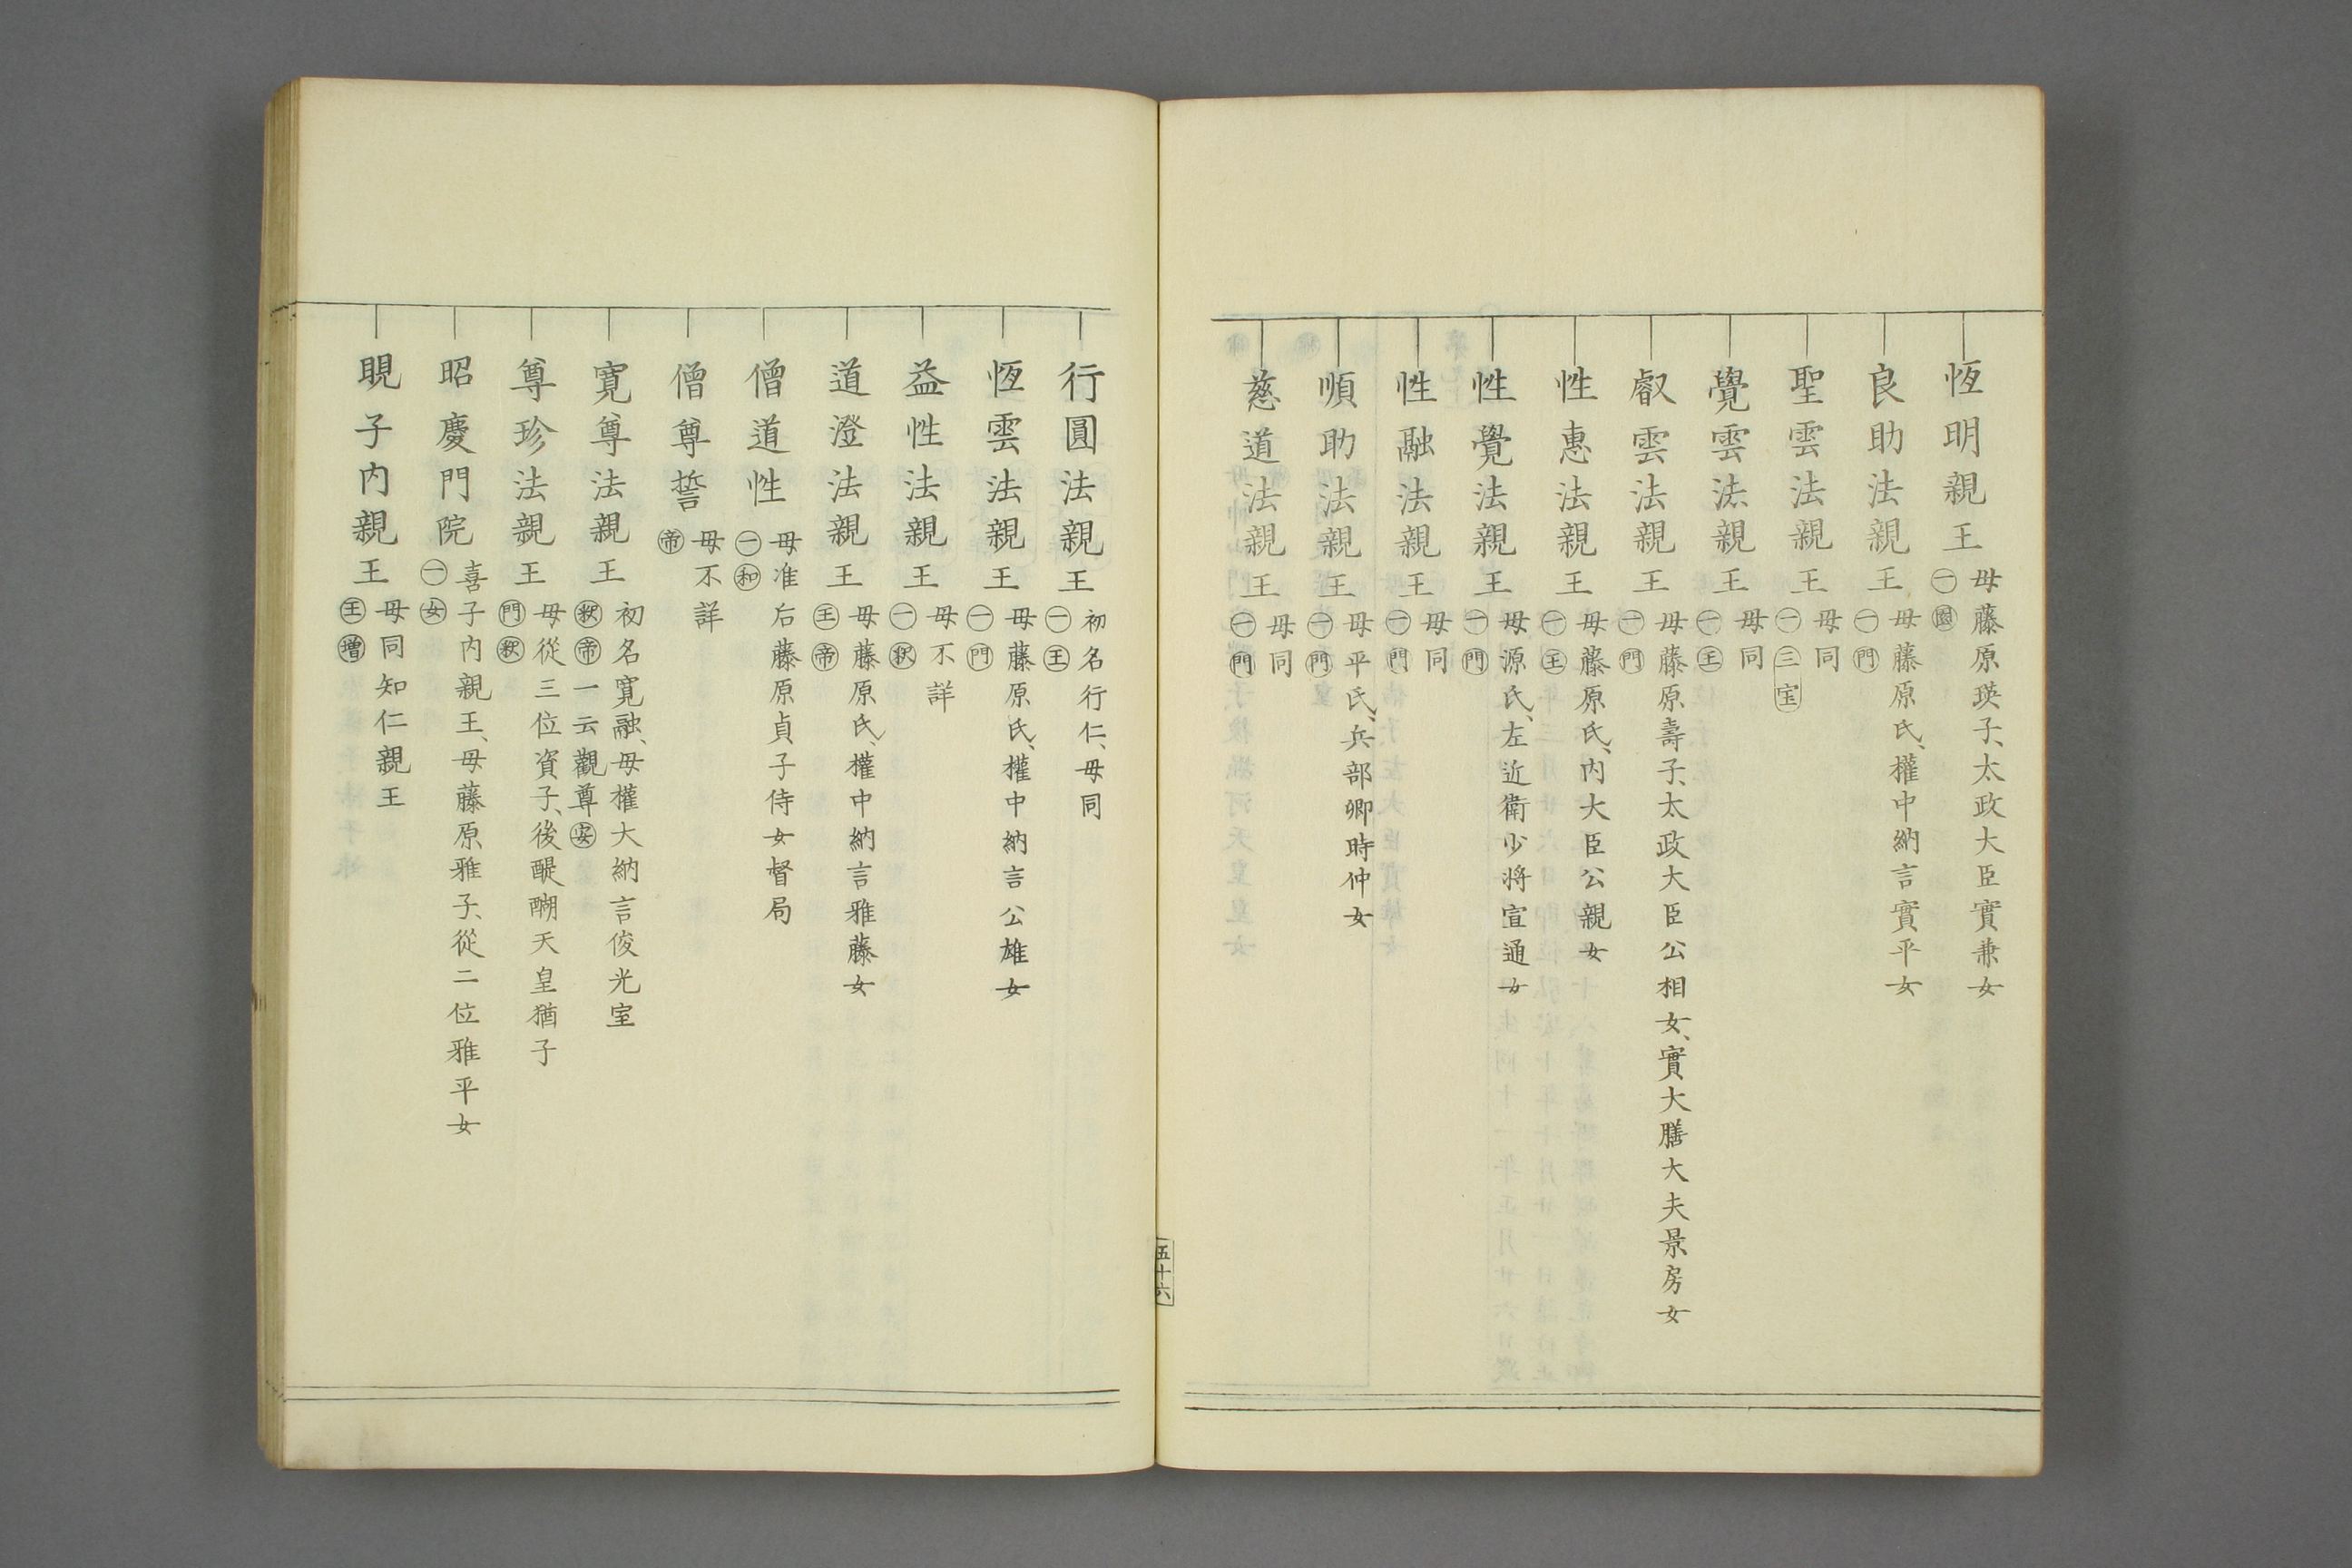 恆明親王 母藤原瑛子、太政大臣實兼女
㊀國
良助法親王 母藤原氏、權中納言實平女
㊀門
聖雲法親王 母同
㊀三宝
覺雲法親王 母同
㊀王
叡雲法親王 母藤原壽子、太政大臣公相女、實大膳大夫景房女
㊀門
性惠法親王 母藤原氏、内大臣公親女
㊀王
性覺法親王 母源氏、左近衛少将宣通女
㊀門
性融法親王 母同
㊀門
順助法親王 母平氏、兵部卿時仲女
㊀門
慈道法親王 母同
㊀門
五十六
行圓法親王 初名行仁、母同
㊀王
恆雲法親王 母藤原氏、權中納言公雄女
㊀門
益性法親王 母不詳
㊀釈
道澄法親王 母藤原氏、權中納言雅藤女
王帝
僧道性 母准后藤原貞子侍女督局
㊀和
僧尊誓 母不詳
帝
寛尊法親王 初名寛融、母權大納言俊光室
釈帝一云觀尊安
尊珍法親王 母從三位資子、後醍醐天皇猶子
門釈
昭慶門院 喜子内親王、母藤原雅子、從二位雅平女
㊀女
晛子内親王 母同知仁親王
王増